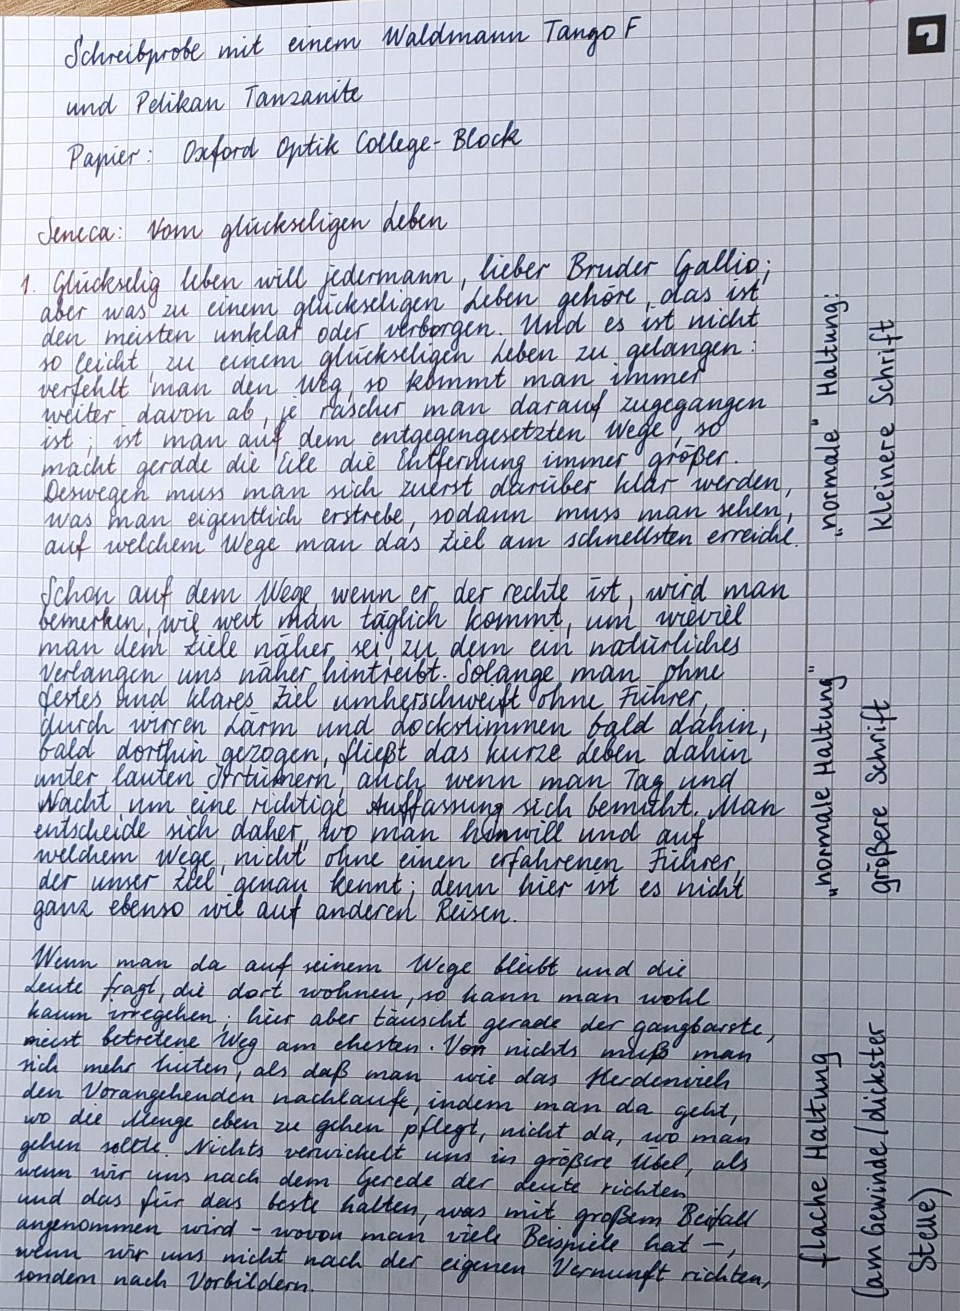 Schreibprobe mit einem Waldmann Tango F
und Pelikan Tanzanite
Papier: Oxford Optik College-Block
Seneca: Vom glückseligen Leben
1. Glückselig leben will jedermann, lieber Bruder Gallio;
aber was zu einem glückseligen Leben gehöre, das ist
den meisten unklar oder verborgen. Und es ist nicht
so leicht, zu einem glückseligen Leben zu gelangen:
verfehlt man den Weg, so kommt man immer
weiter davon ab, je rascher man darauf zugegangen
ist; ist man auf dem entgegengesetzten Wege, so
macht gerade die Eile die Entfernung immer größer.
Deswegen muss man sich zuerst darüber klar werden,
was man eigentlich erstrebe, sodann muss man sehen,
auf welchem Wege man das Ziel am schnellsten erreiche.
„normale" Haltung:
kleinere Schrift
Schon auf dem Wege wenn er der rechte ist, wird man
bemerken, wie weit man täglich kommt, um wieviel
man dem Ziele näher sei zu dem ein natürliches
Verlangen uns näher hintreibt. Solange man ohne
festes und klares Ziel umherschweift ohne Führer,
durch wirren Lärm und Lockstimmen bald dahin,
bald dorthin gezogen, fließt das kurze Leben dahin
unter lauten Irrtümern, auch wenn man Tag und
Nacht um eine richtige Auffassung sich bemüht. Man
entscheide sich daher, wo man hinwill und auf
welchem Wege, nicht ohne einen erfahrenen Führer,
der unser Ziel genau kennt; denn hier ist es nicht
ganz ebenso wie auf anderen Reisen.
„normale Haltung"
größere Schrift
Wenn man da auf seinem Wege bleibt und die
Leute fragt, die dort wohnen, so kann man wohl
kaum irregehen; hier aber täuscht gerade der gangbarste,
meist betretene Weg am ehesten. Von nichts muß man
sich mehr hüten, als daß man wie das Herdenvieh
den Vorangehenden nachlaufe, indem man da geht,
wo die Menge eben zu gehen pflegt, nicht da, wo man
gehen sollte. Nichts verwickelt uns in größere Übel, als
wenn wir uns nach dem Gerede der Leute richten
und das für das beste halten, was mit großem Beifall
angenommen wird - wovon man viele Beispiele hat -,
wenn wir uns nicht nach der eigenen Vernunft richten,
sondern nach Vorbildern.
flache Haltung
(am Gewinde/dickster
Stelle)